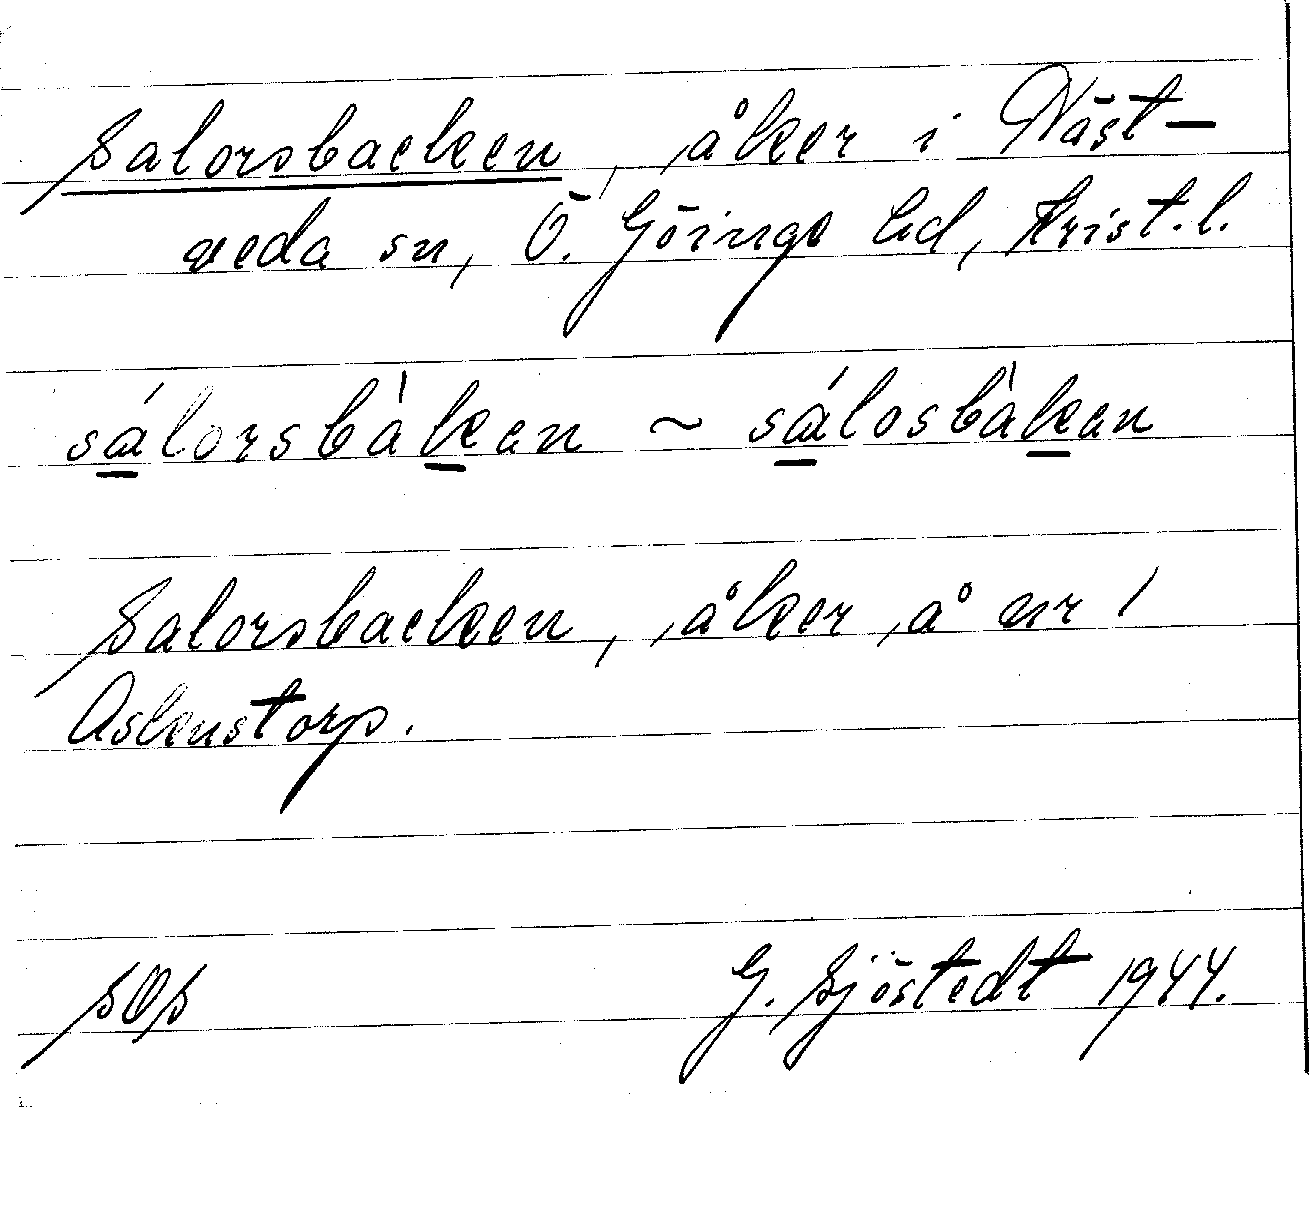 Salorsbacken, åker i Näst-
veda sn, Ö. Göinge hd, Krist.l.
sálorsbàkan ~ sálosbàkan
Salorsbacken, åker å nr 1
Askenstorp.
SOS G. Sjöstedt 1944.